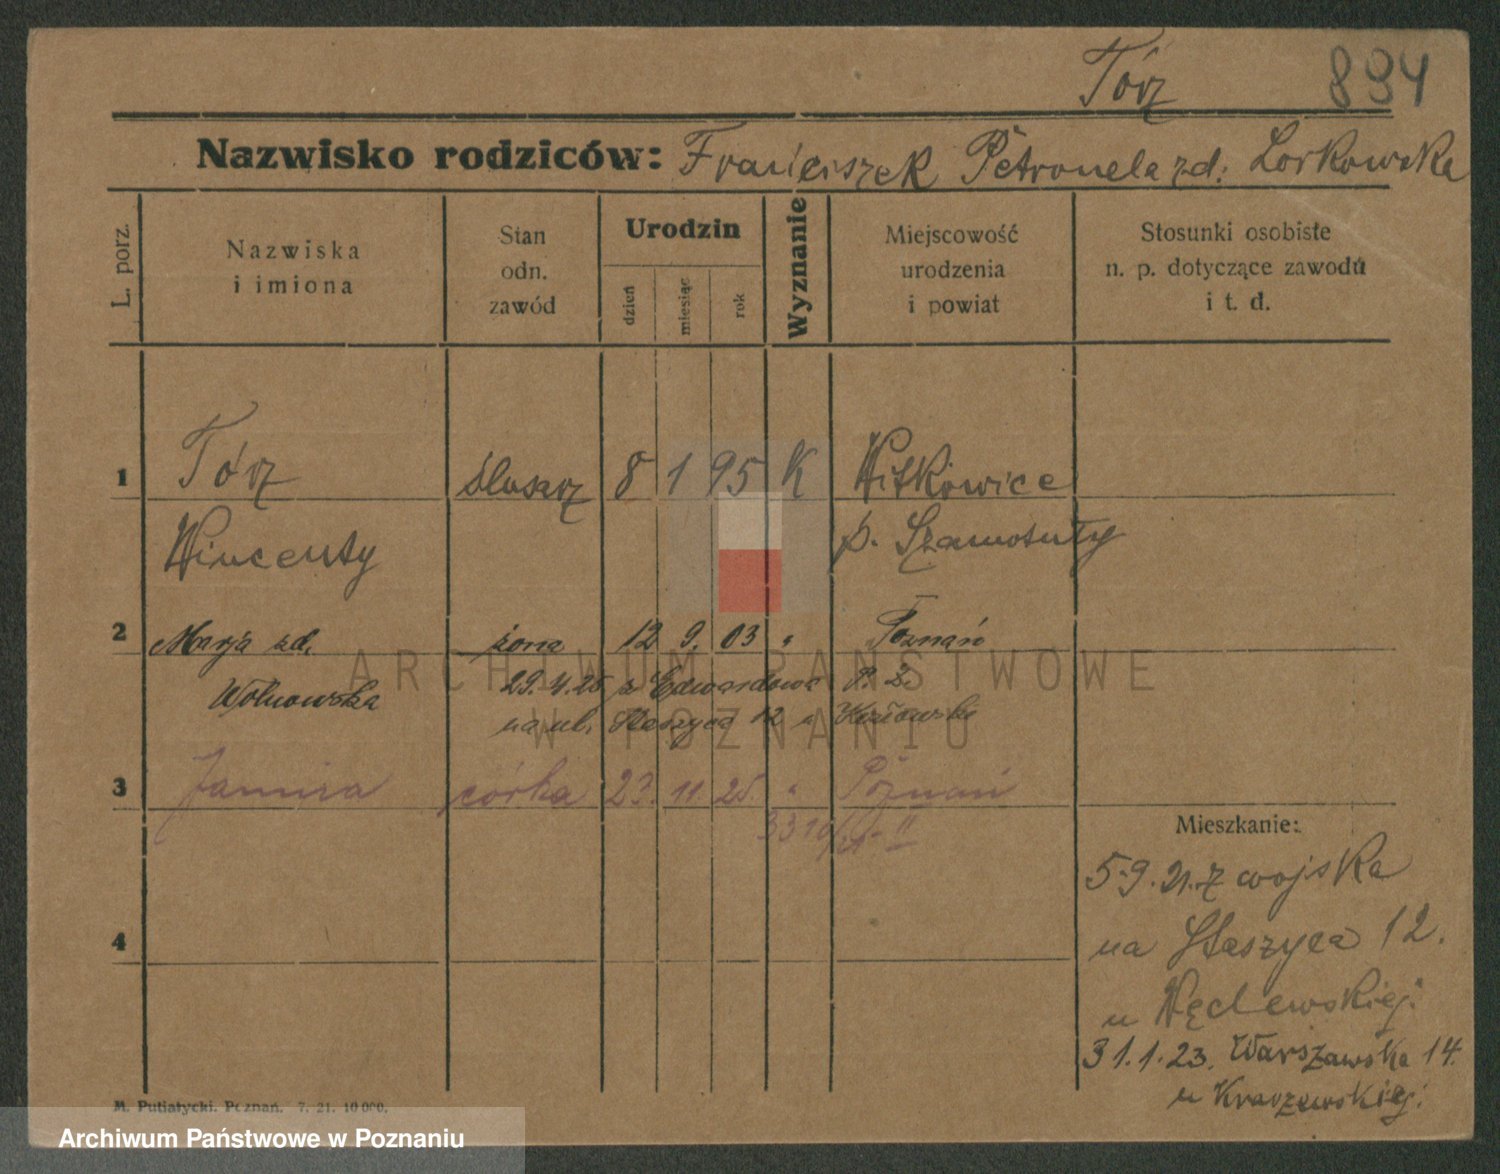 Tórz 894
Nazwisko rodziców: Franciszek Petronela zd: Lorkowska
L. porz.
Nazwiska i imiona
Stan odn. zawód
Urodzin
dzień
miesiąc
rok
Wyznanie
Miejscowość urodzenia i powiat
Stosunki osobiste n. p. dotyczące zawodu i t. d.
1 Tórz ślusarz 8 1 95 K Witkowice
Wincenty p. Szamotuły
2 Marja zd. żona 12 9. 03 " Poznań
Wolnowska 29.4.25 z Edwardowa P. Z.
na ul. Staszyca 12 u
3 córka 23. 11. 25. " Poznań
4
Mieszkanie:
5.9.21. z wojska
na Staszyca 12.
u Węclewskiej.
31.1.23. Warszawska 14.
u Kraszewskiej.
M. Putiatycki. Poznań. 7. 21. 10 000.
ARCHIWUM PAŃSTWOWE
W POZNANIU
Archiwum Państwowe w Poznaniu